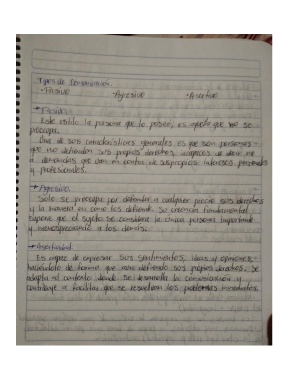 Tipos de Comunicación.
• Pasivo
• Agresivo
• Asertivo
→ Pasivo:
Este estilo la persona que lo posee, es aquella que no se
preocupa.
Una de sus características generales es que son personas
que no defienden sus propios derechos, incapaces de decir no
a demandas que van en contra de sus propios intereses, personales
y profesionales.
→ Agresivo.
Solo se preocupa por defender a cualquier precio sus derechos
y la manera en como los defiende. Su creencia fundamental
supone que el sujeto se considere la única persona importante
y menospreciando a los demás.
→ Asertividad:
Es capaz de expresar sus sentimientos, ideas y opiniones,
haciéndolo de forma que defiende sus propios derechos. Se
adapta al contexto donde se desarrolla la comunicación y
contribuye a facilitar que se resuelvan los problemas inmediatos.